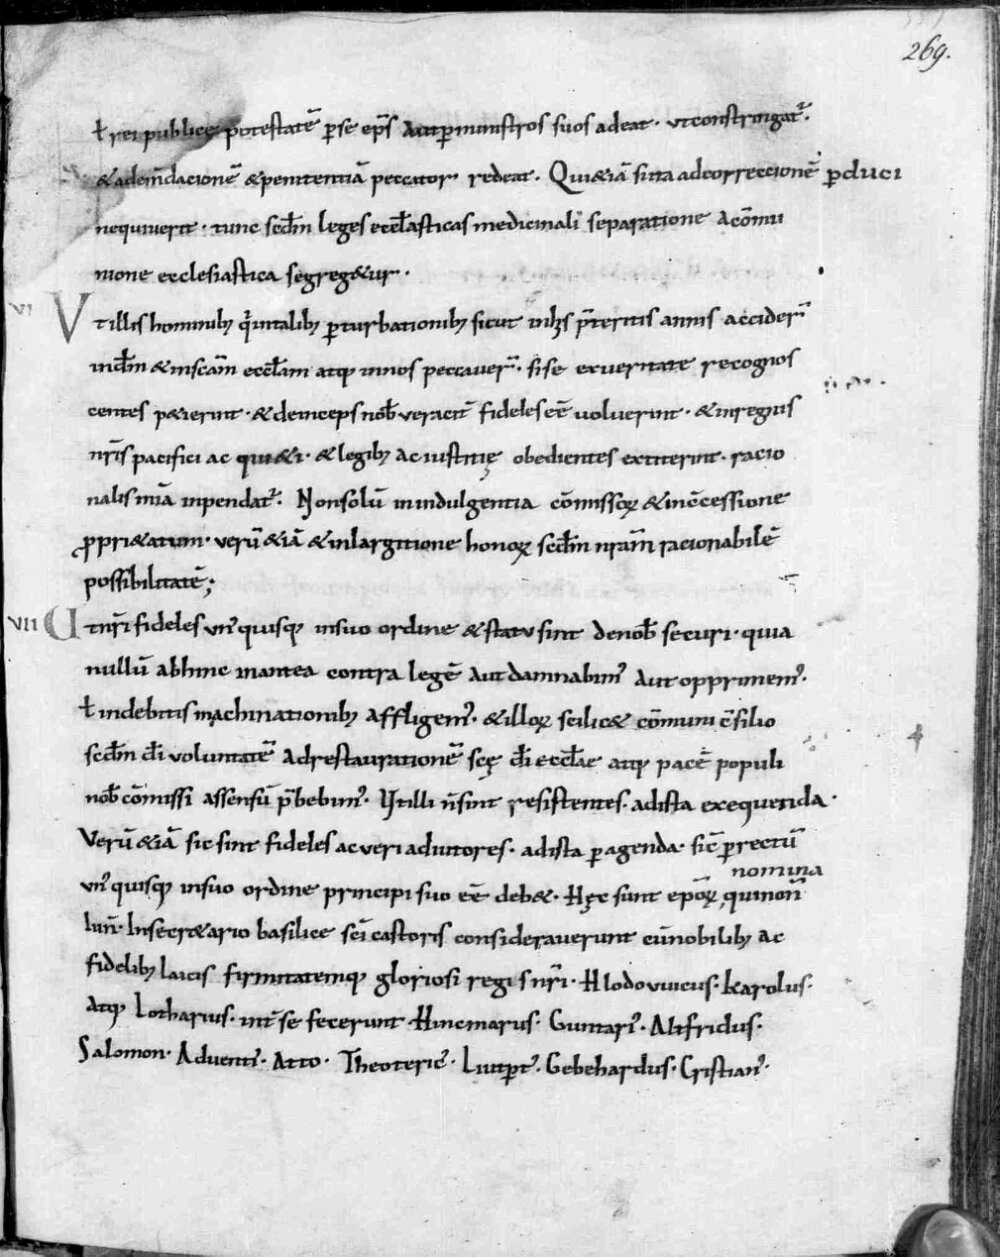 269.
ł rei publice potestatē p̱se ep̄s aut p̱ministros suos adeat · ut constringat᷑.
& ad em̄dacionē & penitentiā peccator redeat. Qui&iā si ita ad correccionē p̱duci
nequiverit · tunc scdm̄ leges eccl̄asticas medicinali separatione acōmu
nione ecclesiastica segreg&ur ·
VI Ut illis hominib; q̄ in talib; p̱turbationib; sicut in his p̄teritis annis acciderᷓ
in dm̄ & in scām eccl̄am atq; in nos peccaverᷓ · si se ex veritate recognos
centes p&ierint · & deinceps nob̄ veracit᷑ fideles eē voluerint · & in regnis
nr̄is pacifici ac qui&i · & legib; ac iustitię obedientes extiterint · racio
nalis mīa inpendat᷑. Non solū in indulgentia cōmissoꝝ & in cōcessione
ꝓpri&atum · verū &iā & in largitione honoꝝ scdm̄ nr̄am racionabilē
possibilitatē;
VII Ut nr̄i fideles unꝰ quisq; in suo ordine & statu sint de nob̄ securi · quia
nullū abhinc inantea contra legē aut damnabimꝰ aut opprimemꝰ.
ł indebitis machinationib; affligemꝰ. & illoꝝ scilic& cōmuni cōsilio
scdm̄ dī voluntatē ad restaurationē scę dī eccl̄ae atq; pacē populi
nob̄ cōmissi assensū p̄bebimꝰ. Ut illi n̄ sint resistentes · ad ista exequenda ·
Verū &iā sic sint fideles ac veri adiutores · ad ista p̱agenda · sic̄ p̱ rectū
nomina
unꝰ quisq; in suo ordine principi suo eē deb& · Hęc sunt epōꝝ, qui non̄
iun̄ · In secr&ario basilice sc̄i castoris consideraverunt cū nobilib; ac
fidelib; laicis firmitatemq; gloriosi regis nr̄i · Hlodovvicus · Karolus ·
atq; Lotharius · int᷑ se fecerunt · Hincmarus · Guntariꝰ · Altfridus ·
Salomon · Adventiꝰ · Atto · Theotericꝰ · Liutp̱tꝰ · Gebehardus · Cristianꝰ ·